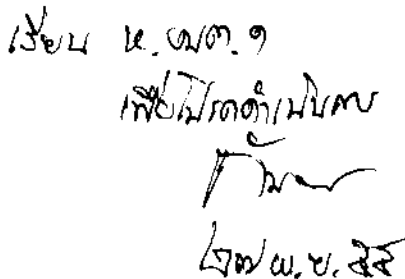 เรียน ห. ฝต. ๑
เพื่อโปรดดำเนินการ
๒๗ พ.ย. ๕๕